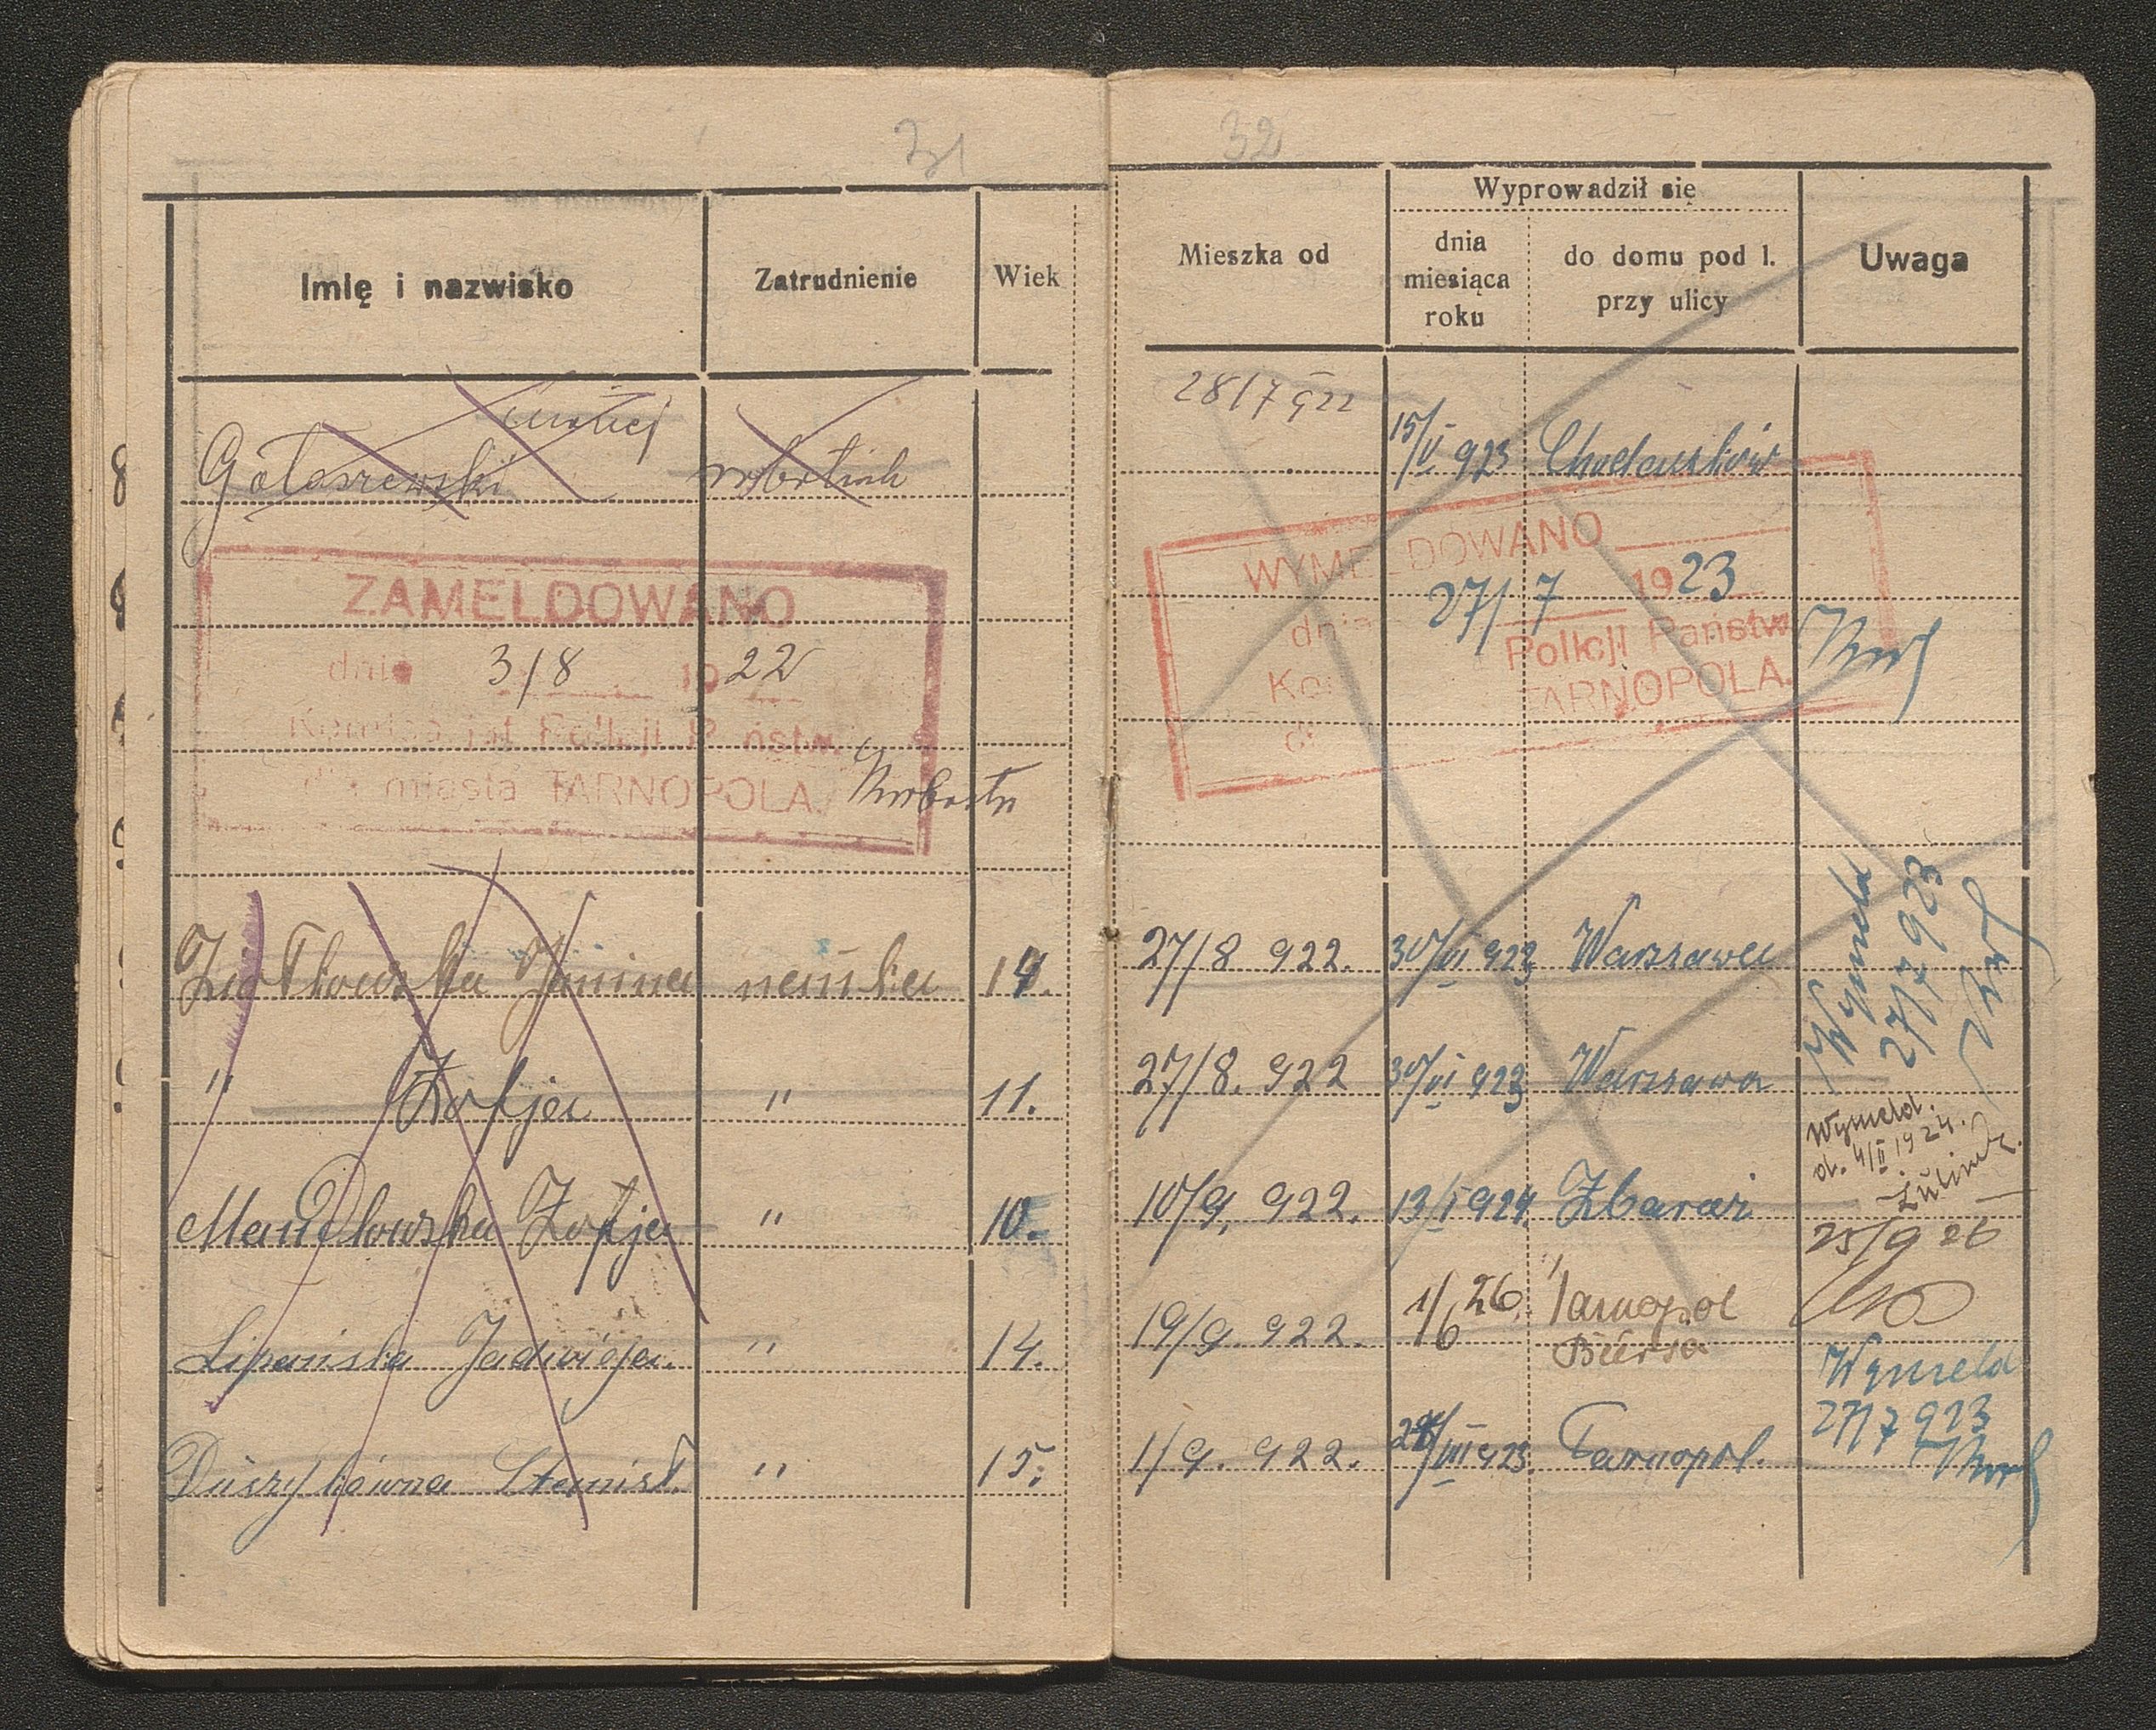 31
Imię i nazwisko Zatrudnienie Wiek
Gołaszewski robotnik
ZAMELDOWANO
dnia 3/8 1922
Komisarjat Policji Państw.
dla miasta TARNOPOLA.
Janina nauka 14.
" Zofja " 11.
Zofja " 10.
Lipańska Jadwiga. " 14.
Stanisł. " 15.
32
Mieszka od Wyprowadził się Uwaga
dnia miesiąca roku do domu pod l. przy ulicy
28/7 922 15/V 923
WYMELDOWANO
dnia 27/7 1923
Policji Państw
TARNOPOLA.
27/8 922. 30/VI 923 Warszawa
Wymeld
27/7 923
27/8. 922 30/VI 923 Warszawa
Wymeld.
d. 4/II 1924.
10/9. 922. 13/I 924 Zbaraż
25/9 26
19/9. 922. 1/6 26. Tarnopol
Bursa
Wymeld
27/7 923
1/9. 922. Tarnopol.